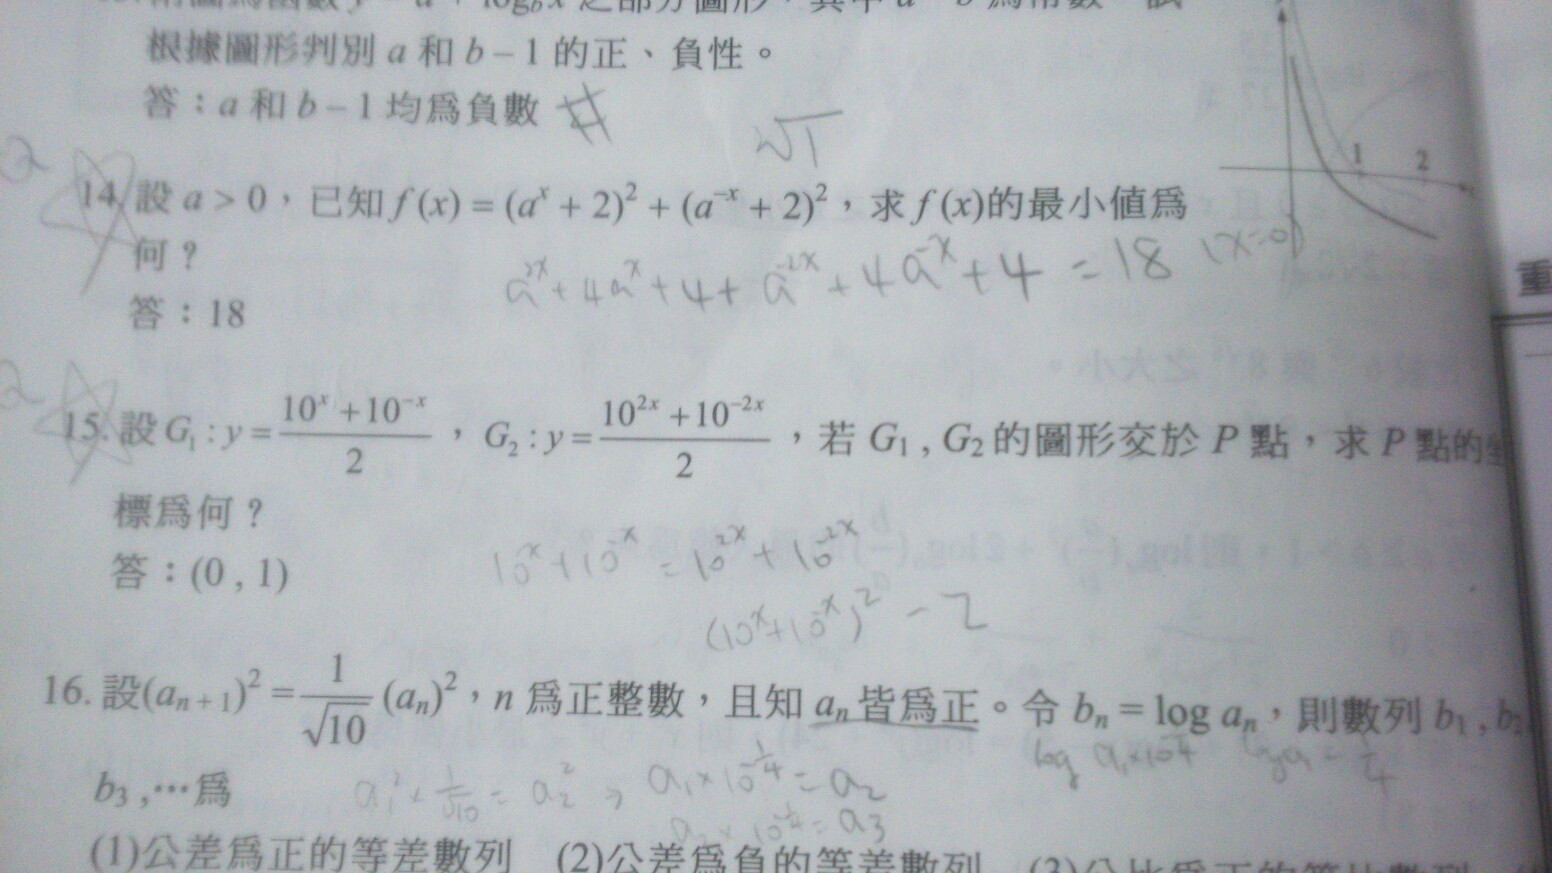 根據圖形判別 a 和 b – 1 的正、負性。
答：a 和 b – 1 均為負數 #
√1
1 2
14. 設 a > 0，已知 f (x) = (aˣ + 2)² + (a⁻ˣ + 2)²，求 f (x)的最小值為
何？
a²ˣ + 4aˣ + 4 + a⁻²ˣ + 4a⁻ˣ + 4 = 18 (x=0)
答：18
重
15. 設 G₁ : y = (10ˣ + 10⁻ˣ)/2，G₂ : y = (10²ˣ + 10⁻²ˣ)/2，若 G₁ , G₂ 的圖形交於 P 點，求 P 點的坐
標為何？
10ˣ + 10⁻ˣ = 10²ˣ + 10⁻²ˣ
答：(0 , 1)
(10ˣ + 10⁻ˣ)² – 2
16. 設(aₙ₊₁)² = 1/√10 (aₙ)²，n 為正整數，且知 aₙ 皆為正。令 bₙ = log aₙ，則數列 b₁ , b₂,
b₃ ,…為
a₁² × 1/√10 = a₂² , a₁ × 10^(-1/4) = a₂
a₂ × 10^(-1/4) = a₃
(1)公差為正的等差數列 (2)公差為負的等差數列 (3)公比為正的等比數列